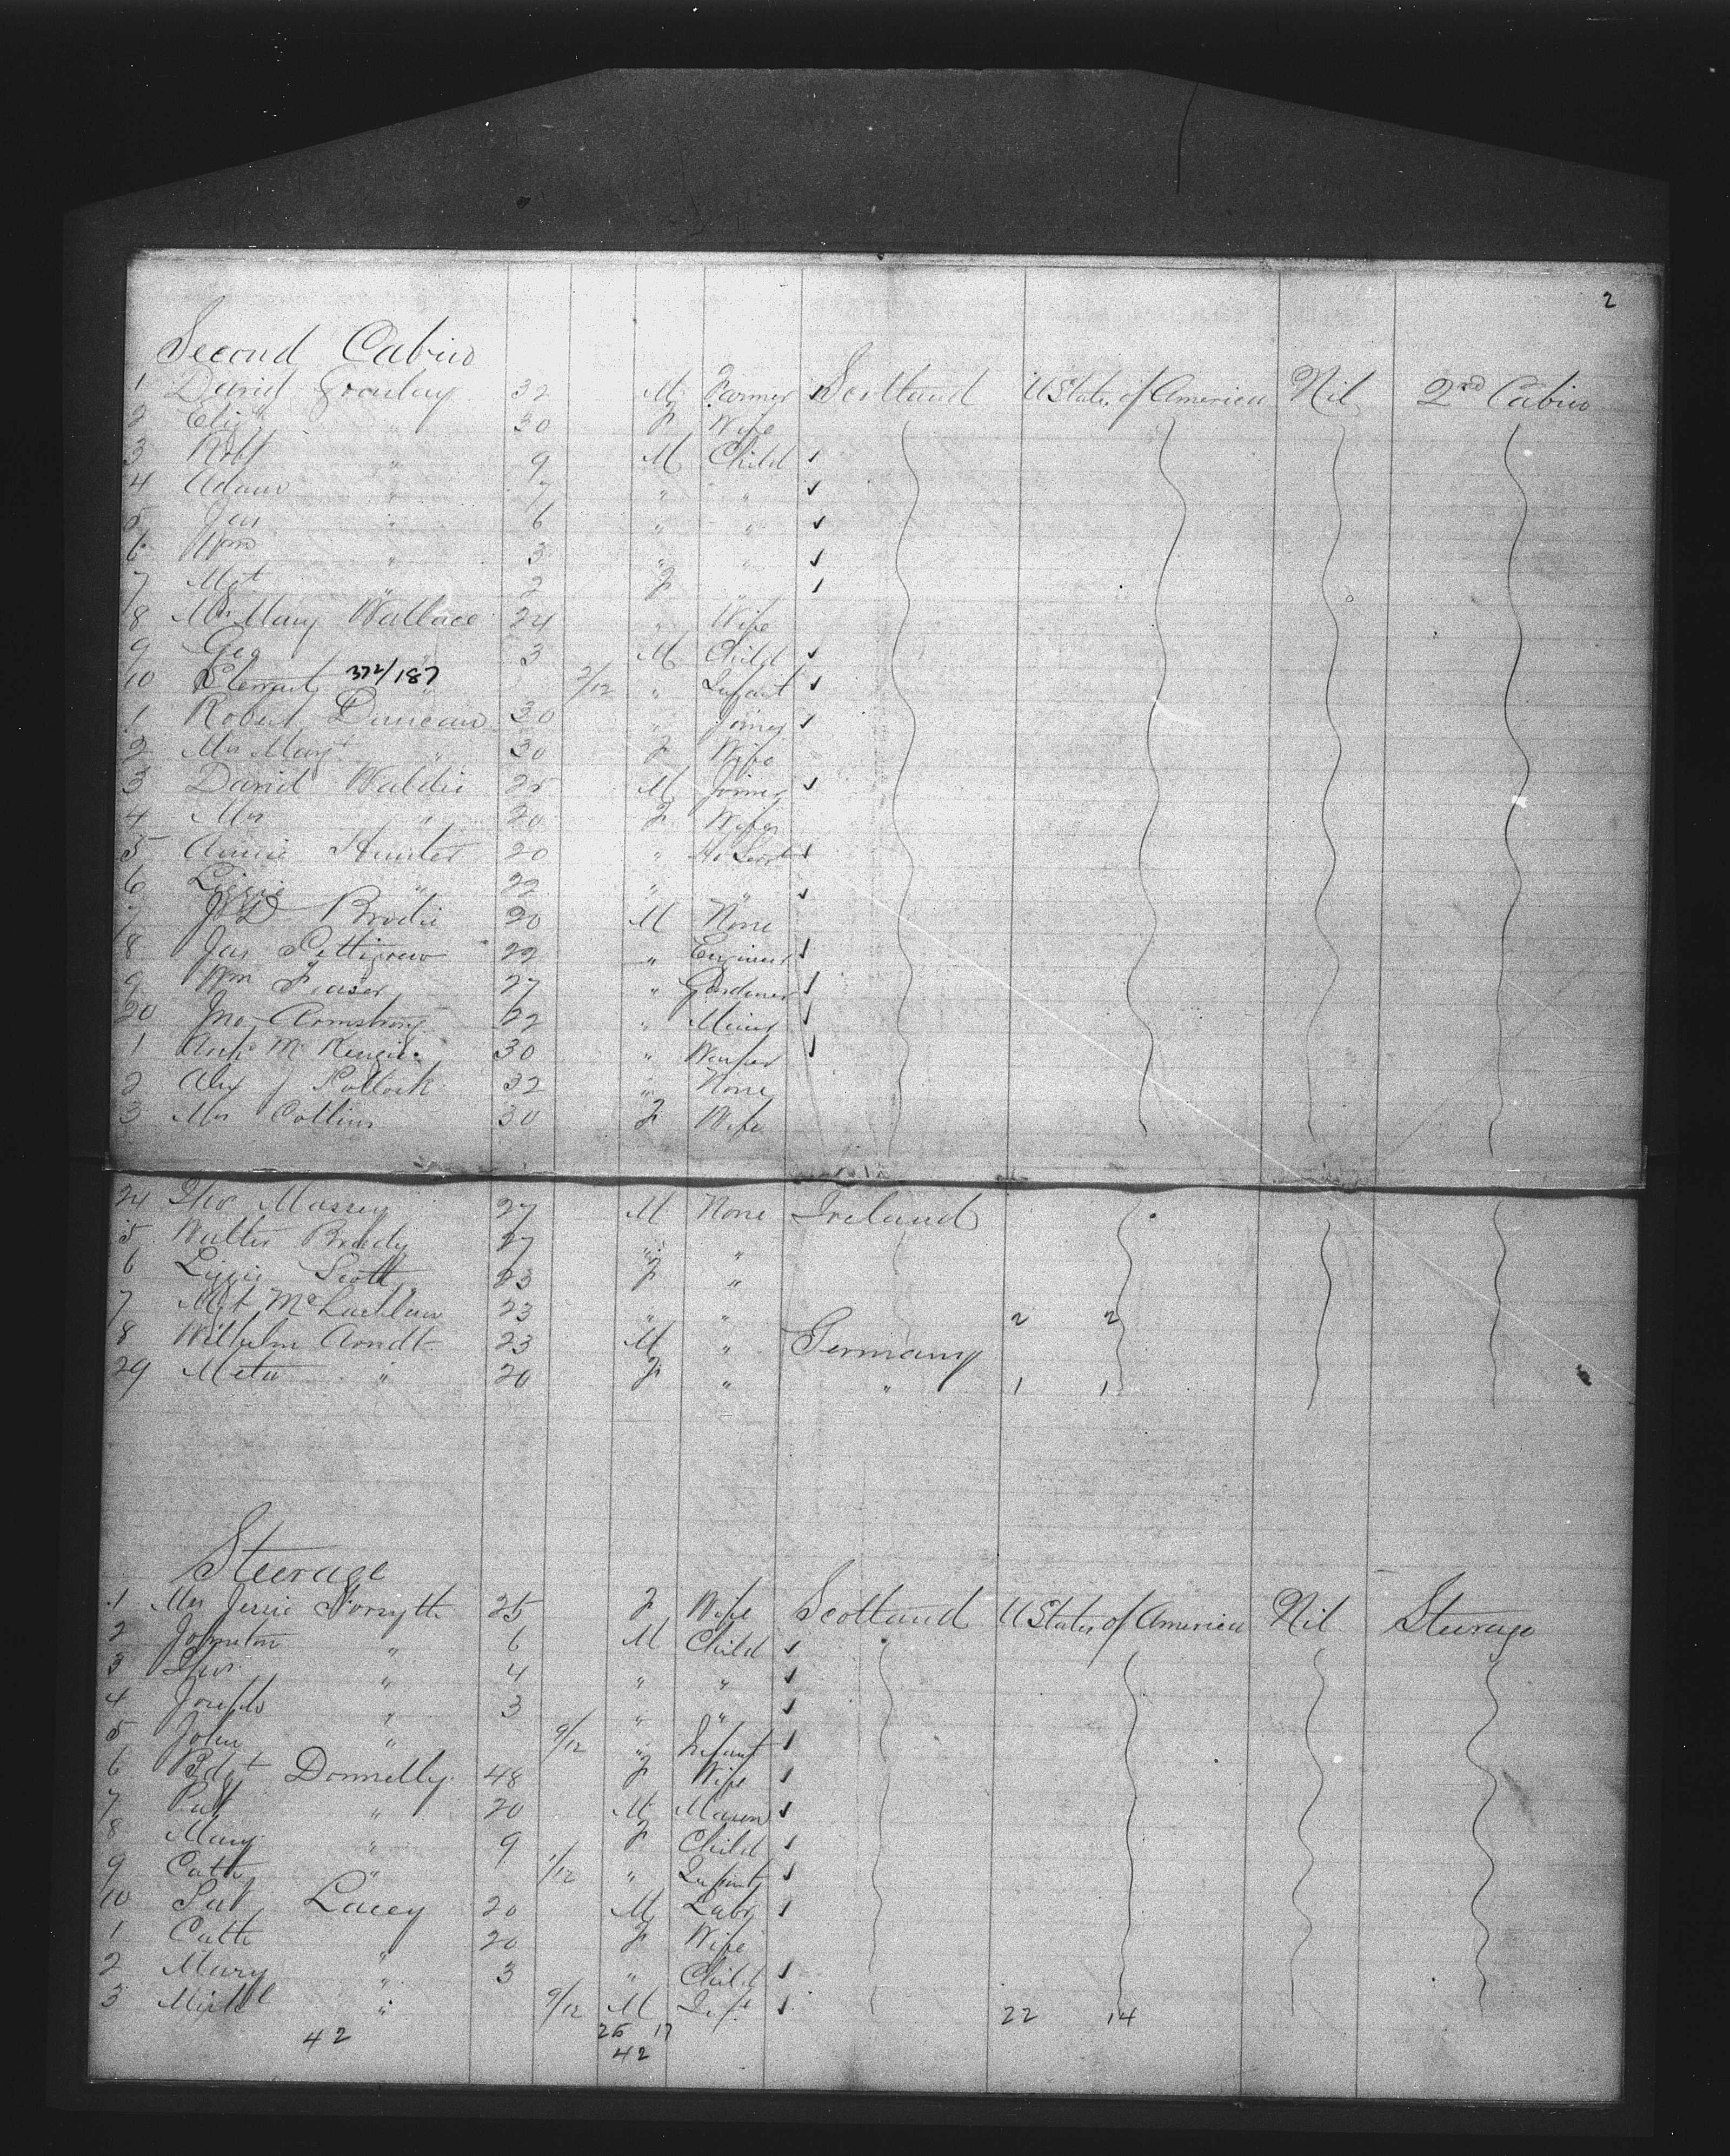 2
Second Cabin
1 David Gourlay 32 M Farmer Scotland U States of America Nil 2nd Cabin
2 Eliz " 30 F Wife
3 Robt " 9 M Child
4 Adam " 7 " "
5 Jas " 6 " "
6 Wm " 3 " "
7 Mgt " 2 F "
8 Mrs Mary Wallace 24 " Wife
9 Geo " 3 M Child
10 Stewart 372/187 " 2/12 " Infant
1 Robert Duncan 30 " Joiner
2 Mrs Margt " 30 F Wife
3 David Waldie 25 M Joiner
4 Mrs " 20 F Wife
5 Annie Hunter 20 "
6 Lizzie " 22 " "
7 Brodie 20 M None
8 Jas Pettigrew 22 " Engineer
9 Wm Fraser 27 " Gardener
20 Jno Armstrong 22 " Miner
1 Arch McKenzie 30 "
2 Alex J Pollock 32 " None
3 Mrs Collins 30 F Wife
24 Massey 27 M None Ireland
5 Walter Brady 27 " "
6 Lizzie Scott 23 F "
7 Mgt McLachlan 23 " " 2 2
8 Wilhelm Arndt 23 M " Germany
29 Meta " 20 F " " 1 1
Steerage
1 Mrs Jessie Forsyth 25 F Wife Scotland U States of America Nil Steerage
2 Johnston " 6 M Child
3 " 4 " "
4 Joseph " 3 " "
5 John " 9/12 " Infant
6 Bdgt Donnelly 48 F Wife
7 Pat " 20 M Mason
8 Mary " 9 F Child
9 Cath " 1/12 " Infant
10 Pat Lacey 20 M Labr
1 Cath " 20 F Wife
2 Mary " 3 " Child
3 Michl " 9/12 M Inft 22 14
42 25 17
42